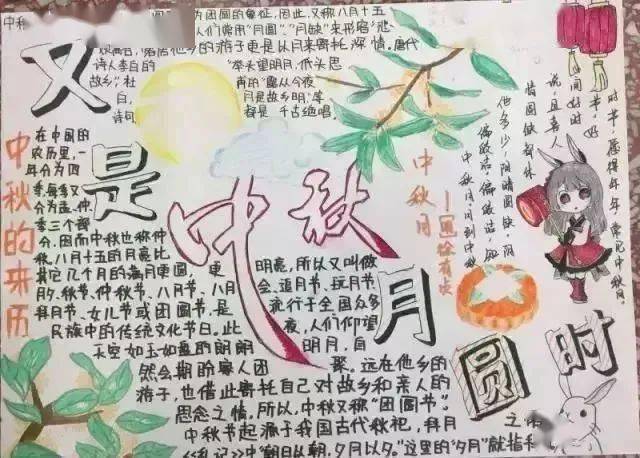 又是中秋月圆时
中秋的来历
为团圆的象征,因此,又称八月十五
人们常用“月圆”、“月缺”来形容“悲
他乡的游子更是以月来寄托深情。唐代
诗人李白的
“举头望明月,低头思
故乡”,杜
甫的“露从今夜
白,
月是故乡明”等
诗句
都是千古绝唱。
在中国的
农历里,一
年分为四
季,每季又
分为孟、仲、
季三个部
分,因而中秋也称仲
秋。八月十五的月亮比
其它几个月的满月更圆,更
明亮,所以又叫做
月夕、秋节、仲秋节、八月节、八月
会、追月节、玩月节、
拜月节、女儿节或团圆节,是
流行于全国众多
民族中的传统文化节日。此
夜,人们仰望
天空如玉如盘的朗朗
明月,自
然会期盼家人团
聚。远在他乡的
游子,也借此寄托自己对故乡和亲人的
思念之情。所以,中秋又称“团圆节”。
中秋节起源于我国古代秋祀、拜月
之
《礼记》中“朝日以朝,夕月以夕。”这里的“夕月”就指
中秋月
中秋月。月到中秋
偏皎洁。偏皎洁,知
他多少,阴晴圆缺。阴
晴圆缺都休
说,且喜人
间好时
节。好
时节,愿得年年,常见中秋月。